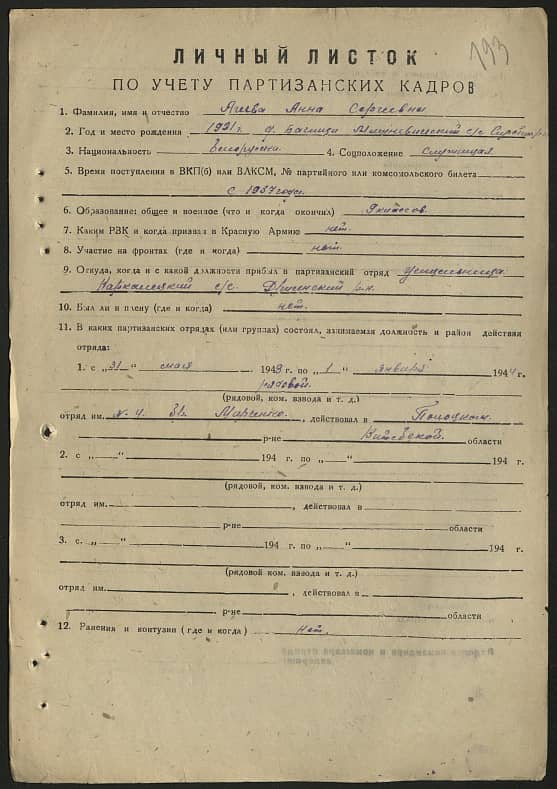 193
ЛИЧНЫЙ ЛИСТОК
ПО УЧЕТУ ПАРТИЗАНСКИХ КАДРОВ
1. Фамилия, имя и отчество Агеева Анна Сергеевна
2. Год и место рождения 1921 г. д. с/с
3. Национальность белоруска. 4. Соцположение Служащая.
5. Время поступления в ВКП(б) или ВЛКСМ, № партийного или комсомольского билета
с 1937 года.
6. Образование: общее и военное (что и когда окончил)
7. Каким РЗК и когда призван в Красную Армию нет.
8. Участие на фронтах (где и когда) нет.
9. Откуда, когда и с какой должности прибыл в партизанский отряд учительница
с/с Дриссенский р-н.
10. Был ли в плену (где и когда) нет.
11. В каких партизанских отрядах (или группах) состоял, занимаемая должность и район действия
отряда:
1. с „31“ мая 1943 г. по „1“ января 1944 г.
рядовой.
(рядовой, ком. взвода и т. д.)
отряд им. , действовал в Полоцком
р-не Витебской области
2. с „ “ 194 г. по „ “ 194 г.
(рядовой, ком. взвода и т. д.)
отряд им. , действовал в
р-не области
3. с „ “ 194 г. по „ “ 194 г.
(рядовой, ком. взвода и т. д.)
отряд им. , действовал в
р-не области
12. Ранения и контузии (где и когда) нет.